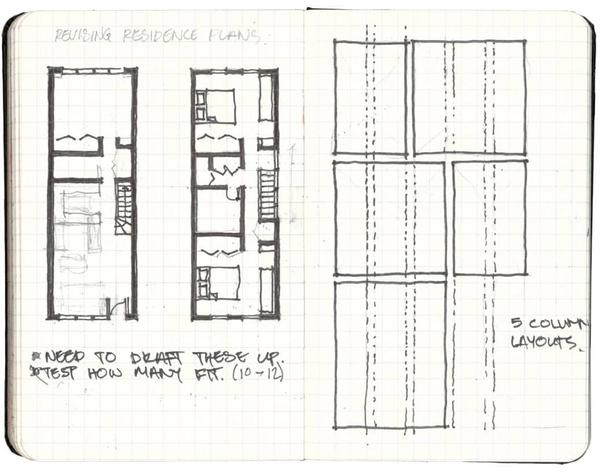 REVISING RESIDENCE PLANS.
* NEED TO DRAFT THESE UP.
* TEST HOW MANY FIT. (10-12)
5 COLUMN
LAYOUTS.